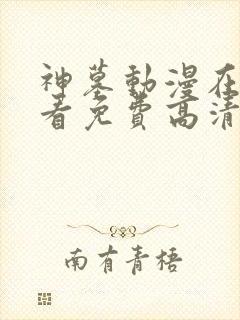 神墓動漫在
看免費高清
南有青梧